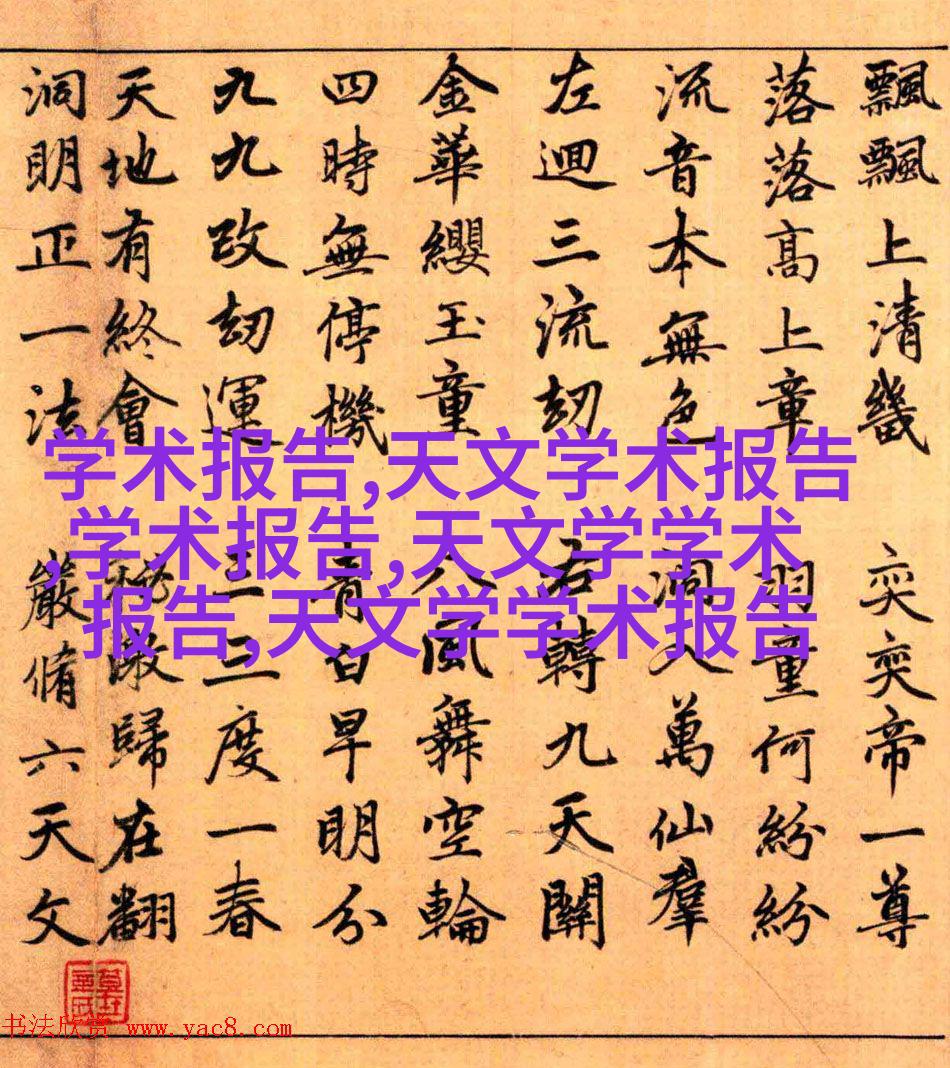 飄飄上清畿 奕奕帝一尊
落落高上章 羽童何紛紛
流音本無色 洞入萬仙羣
左迴三流劫 右轉九天關
金華纓玉童 八風舞空輪
四時無停機 青白早明分
九九改劫運 三三度一春
天地有終會 歸在翻
洞明正一法 嚴脩六天文
学术报告,天文学术报告
,学术报告,天文学学术
报告,天文学学术报告
书法欣赏 www.yac8.com